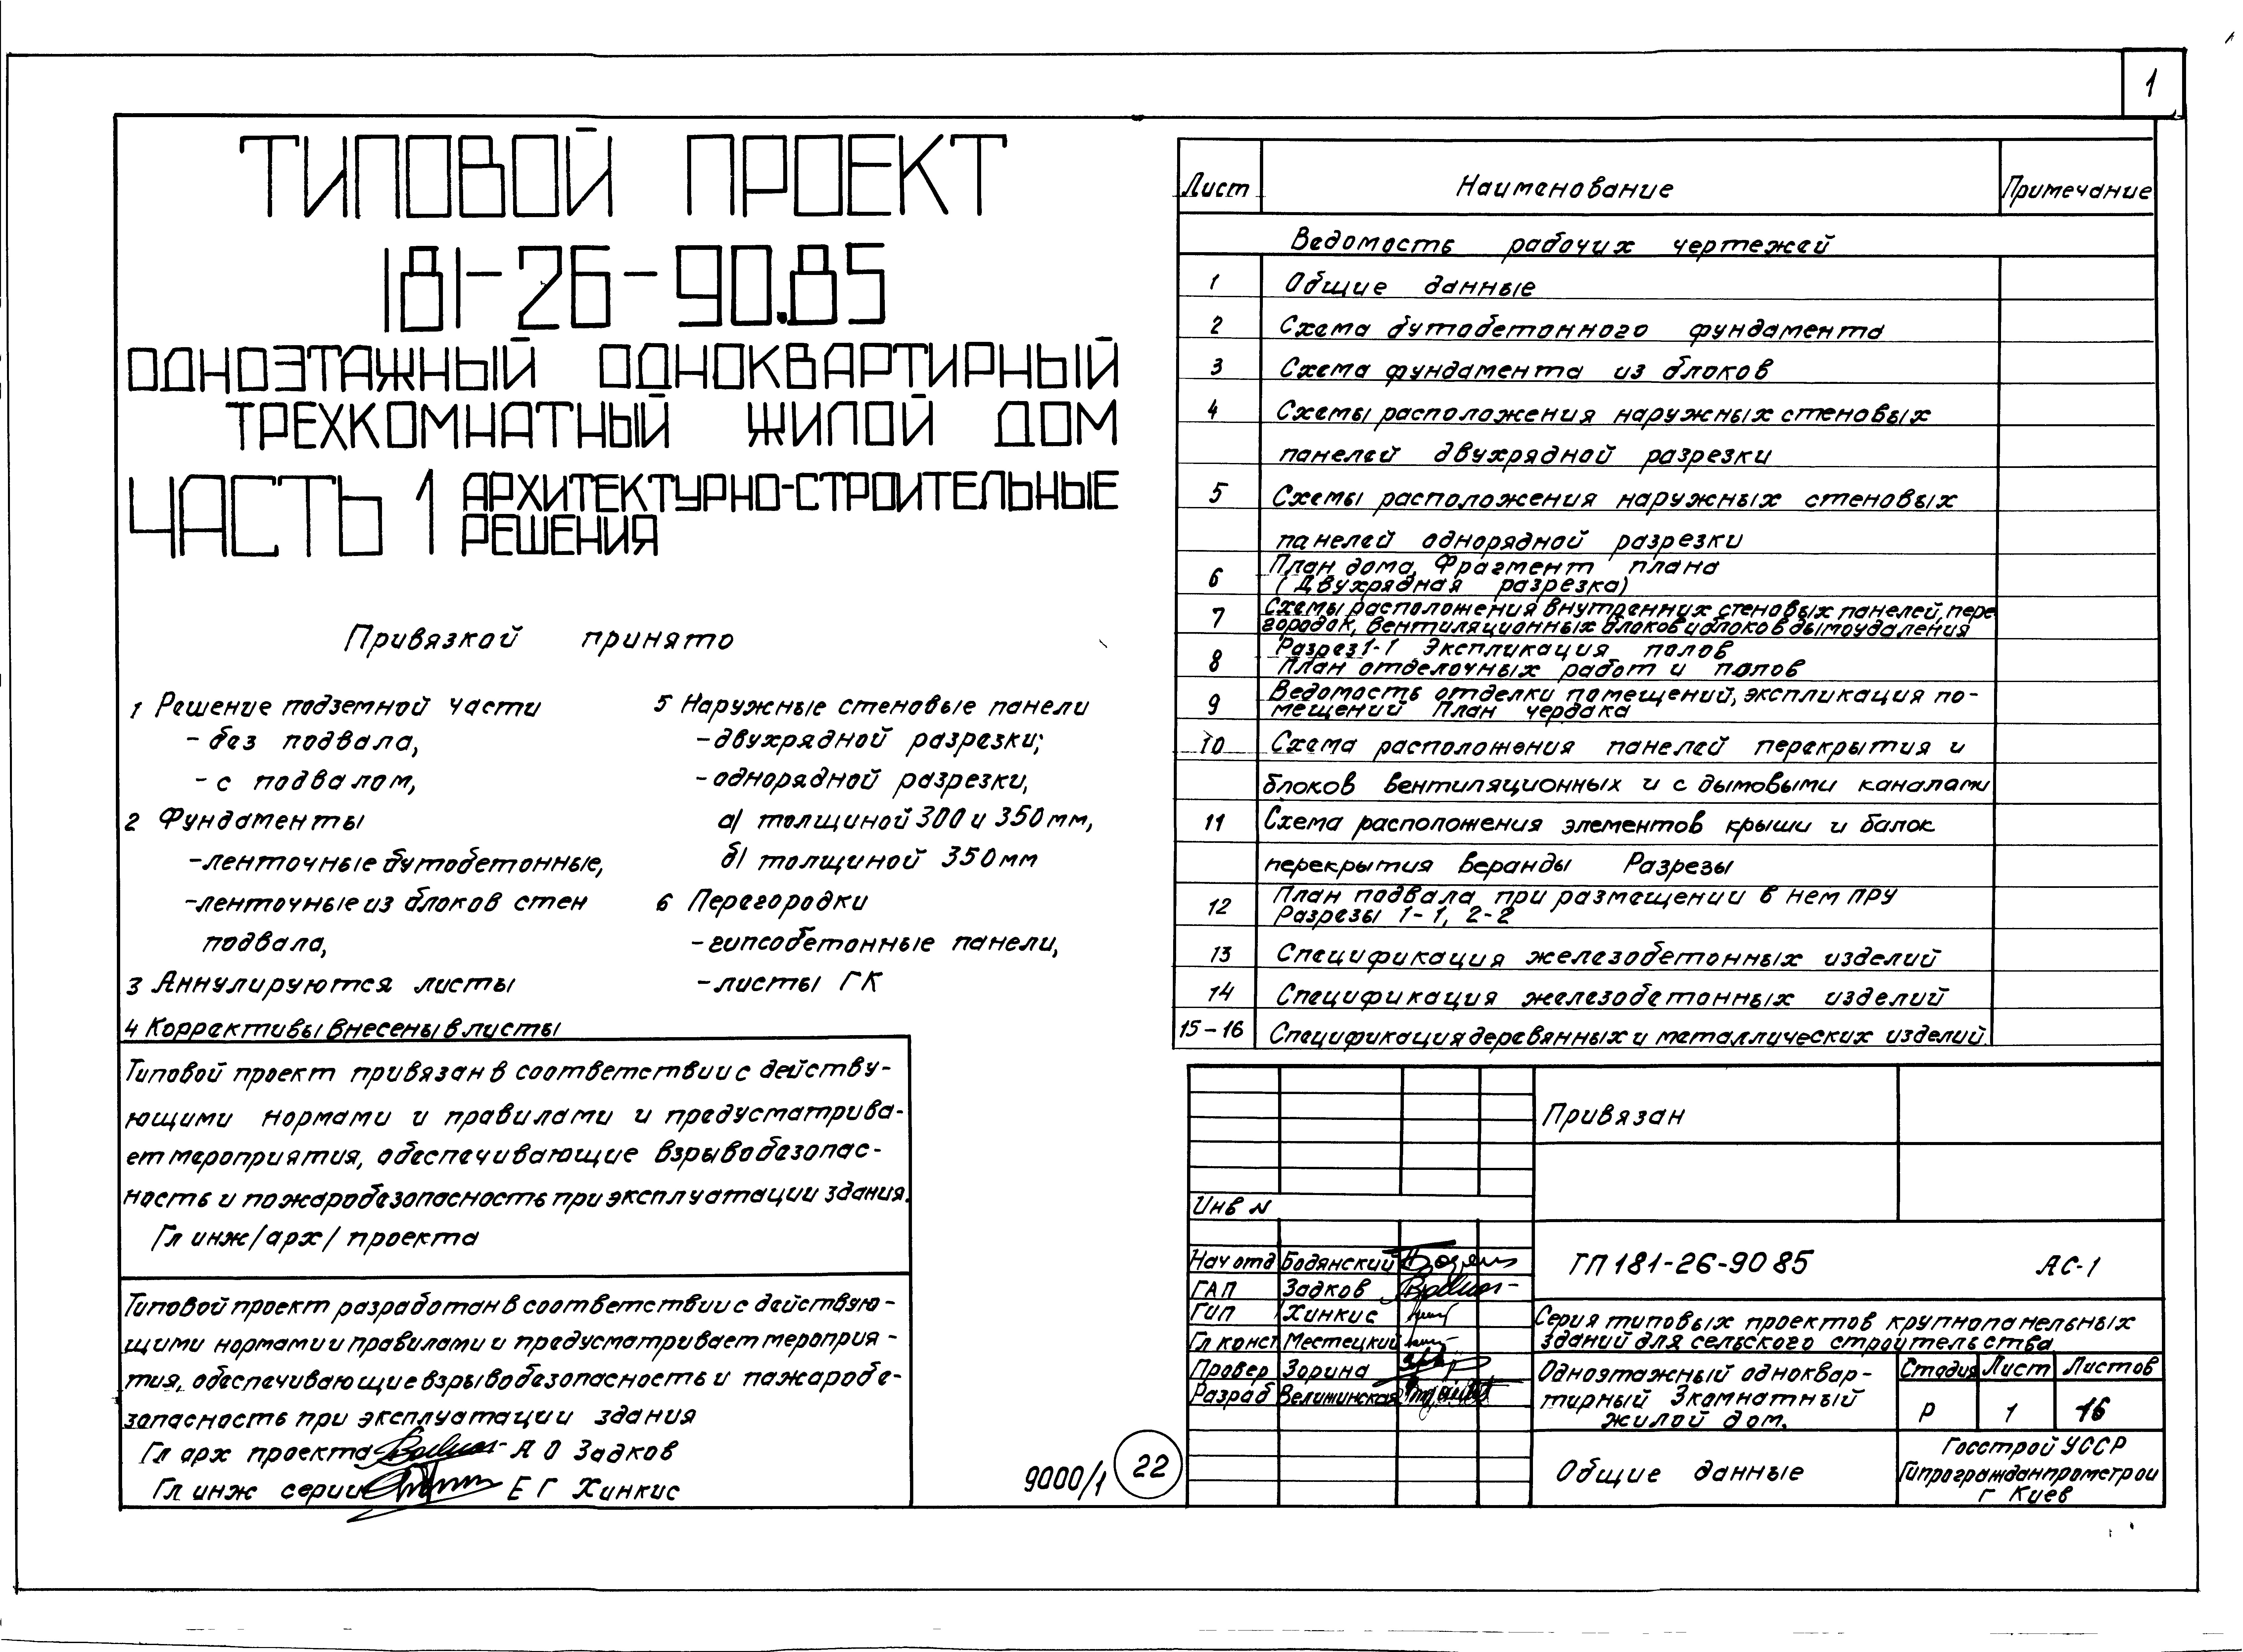 1
ТИПОВОЙ ПРОЕКТ
181-26-90.85
ОДНОЭТАЖНЫЙ ОДНОКВАРТИРНЫЙ
ТРЕХКОМНАТНЫЙ ЖИЛОЙ ДОМ
ЧАСТЬ 1 АРХИТЕКТУРНО-СТРОИТЕЛЬНЫЕ
РЕШЕНИЯ
Привязкой принято
1 Решение подземной части
- без подвала,
- с подвалом,
2 Фундаменты
-ленточные бутобетонные,
-ленточные из блоков стен
подвала,
3 Аннулируются листы
4 Коррективы внесены в листы
5 Наружные стеновые панели
-двухрядной разрезки;
-однорядной разрезки,
а) толщиной 300 и 350мм,
б) толщиной 350мм
6 Перегородки
-гипсобетонные панели,
-листы ГК
Типовой проект привязан в соответствии с действу-
ющими нормами и правилами и предусматрива-
ет мероприятия, обеспечивающие взрывобезопас-
ность и пожаробезопасность при эксплуатации здания.
Гл инж/арх/ проекта
Типовой проект разработан в соответствии с действую-
щими нормами и правилами и предусматривает мероприя-
тия, обеспечивающие взрывобезопасность и пажаробе-
зопасность при эксплуатации здания
Гл арх проекта А О Задков
Гл инж серии Е Г Хинкис
9000/1 22
Лист Наименование Примечание
Ведомость рабочих чертежей
1 Общие данные
2 Схема бутобетонного фундамента
3 Схема фундамента из блоков
4 Схемы расположения наружных стеновых
панелей двухрядной разрезки
5 Схемы расположения наружных стеновых
панелей однорядной разрезки
6 План дома, Фрагмент плана
(Двухрядная разрезка)
7 Схемы расположения внутренних стеновых панелей, пере
городок, вентиляционных блоков и блоков дымоудаления
8 Разрез 1-1 Экспликация полов
План отделочных работ и полов
9 Ведомость отделки помещений, экспликация по-
мещений План чердака
10 Схема расположения панелей перекрытия и
блоков вентиляционных и с дымовыми каналами
11 Схема расположения элементов крыши и балок
перекрытия веранды Разрезы
12 План подвала при размещении в нем ПРУ
Разрезы 1-1, 2-2
13 Спецификация железобетонных изделий
14 Спецификация железобетонных изделий
15-16 Спецификация деревянных и металлических изделий
Привязан
Инв N
Нач отд Бодянский
ГАП Задков
ГИП Хинкис
Гл конст Местецкий
Провер Зорина
Разраб Велишинская
ТП 181-26-90 85 АС-1
Серия типовых проектов крупнопанельных
зданий для сельского строительства
Одноэтажный одноквар-
тирный 3комнатный
жилой дом.
Стадия Лист Листов
Р 1 16
Общие данные
Госстрой УССР
Гипрогражданпромстрой
г Киев